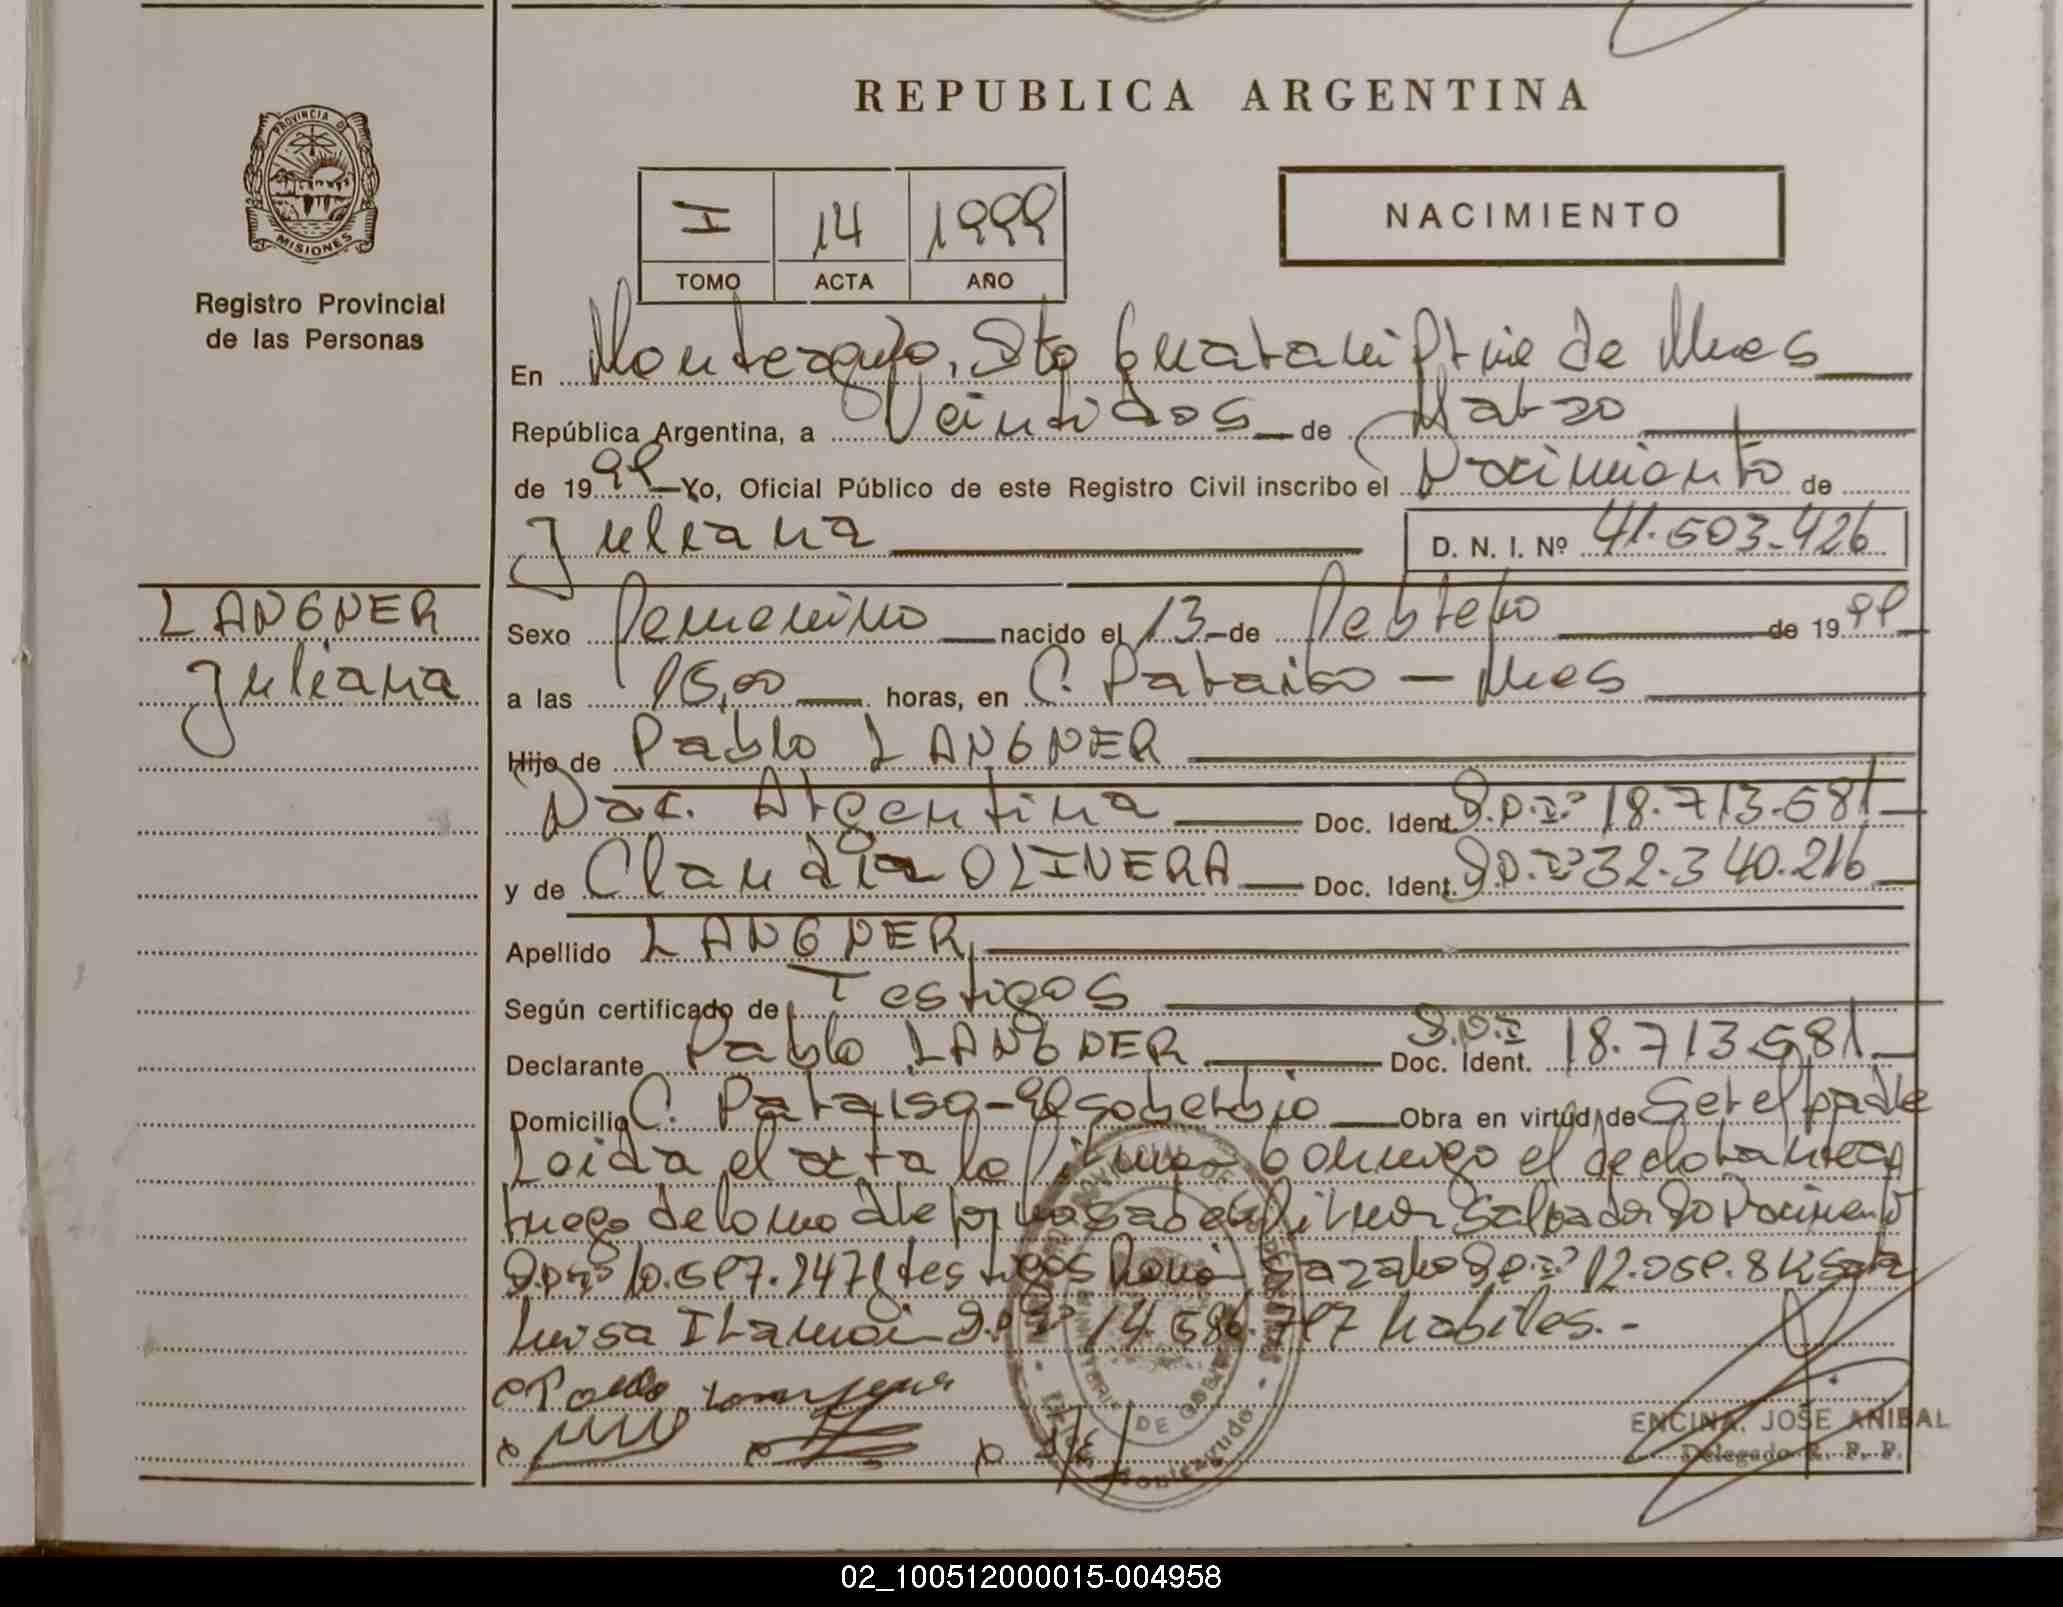 REPUBLICA ARGENTINA
PROVINCIA DE
MISIONES
Registro Provincial
de las Personas
I 14 1999
TOMO ACTA AÑO
NACIMIENTO
En Monteagudo, Dto Guarani Ptvie de Mnes
República Argentina, a Veintidos de Marzo
de 1999 Yo, Oficial Público de este Registro Civil inscribo el Nacimiento de
Juliana D. N. I. Nº 41.503.426
LANGNER
Juliana
Sexo Femenino nacido el 13 de Febrero de 1999
a las 15,00 horas, en C. Paraiso - Mnes
Hijo de Pablo LANGNER
Nac. Argentina Doc. Ident. D.N.I.º 18.713.581
y de Claudia OLIVERA Doc. Ident. D.N.Iº 32.340.216
Apellido LANGNER
Según certificado de Testigos
Declarante Pablo LANGNER Doc. Ident. D.N.I 18.713.581
Domicilio C. Paraiso - El Soberbio Obra en virtud de Ser el padre
Leida el acta la firman conmigo el declarante a
ruego de la madre por no saber firmar Salvador Do Nacimento
testigos
Luisa 14.586.797 habiles.-
MINISTERIO DE GOBIERNO
Monteagudo
ENCINA, JOSE ANIBAL
Delegado R. P. P.
02_100512000015-004958